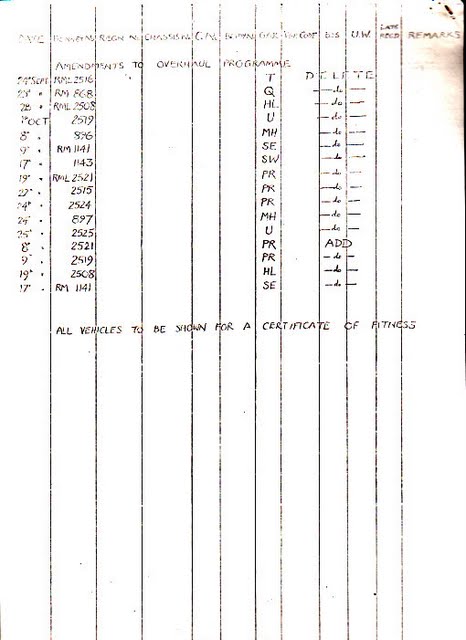 DATE BONNET No REGN No CHASSIS No C.P.V. GAR. U.W. LATE RECD REMARKS
AMENDMENTS TO OVERHAUL PROGRAMME
SEPT RML 2516 T DELETE
" RM 868 Q — do —
" RML 2508 HL — do —
OCT 2519 U — do —
8" " 896 MH — do —
9" " RM 1141 SE — do —
17" " 1143 SW — do —
19" " RML 2521 PR — do —
" 2515 PR — do —
24" " 2524 PR — do —
" 897 MH — do —
25" " 2525 U — do —
8" " 2521 PR ADD
9" " 2519 PR — do —
19" " 2508 HL — do —
17" " RM 1141 SE — do —
ALL VEHICLES TO BE SHOWN FOR A CERTIFICATE OF FITNESS